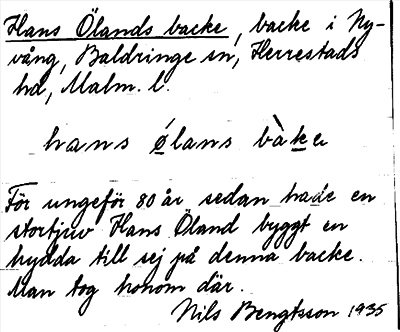 Hans Ölands backe, backe i Ny-
vång, Baldringe sn, Herrestads
hd, Malm. l.
hans ølans bàkɐ
För ungefär 80 år sedan hade en
stortjuv Hans Öland byggt en
hydda till sej på denna backe.
Man tog honom där.
Nils Bengtsson 1935